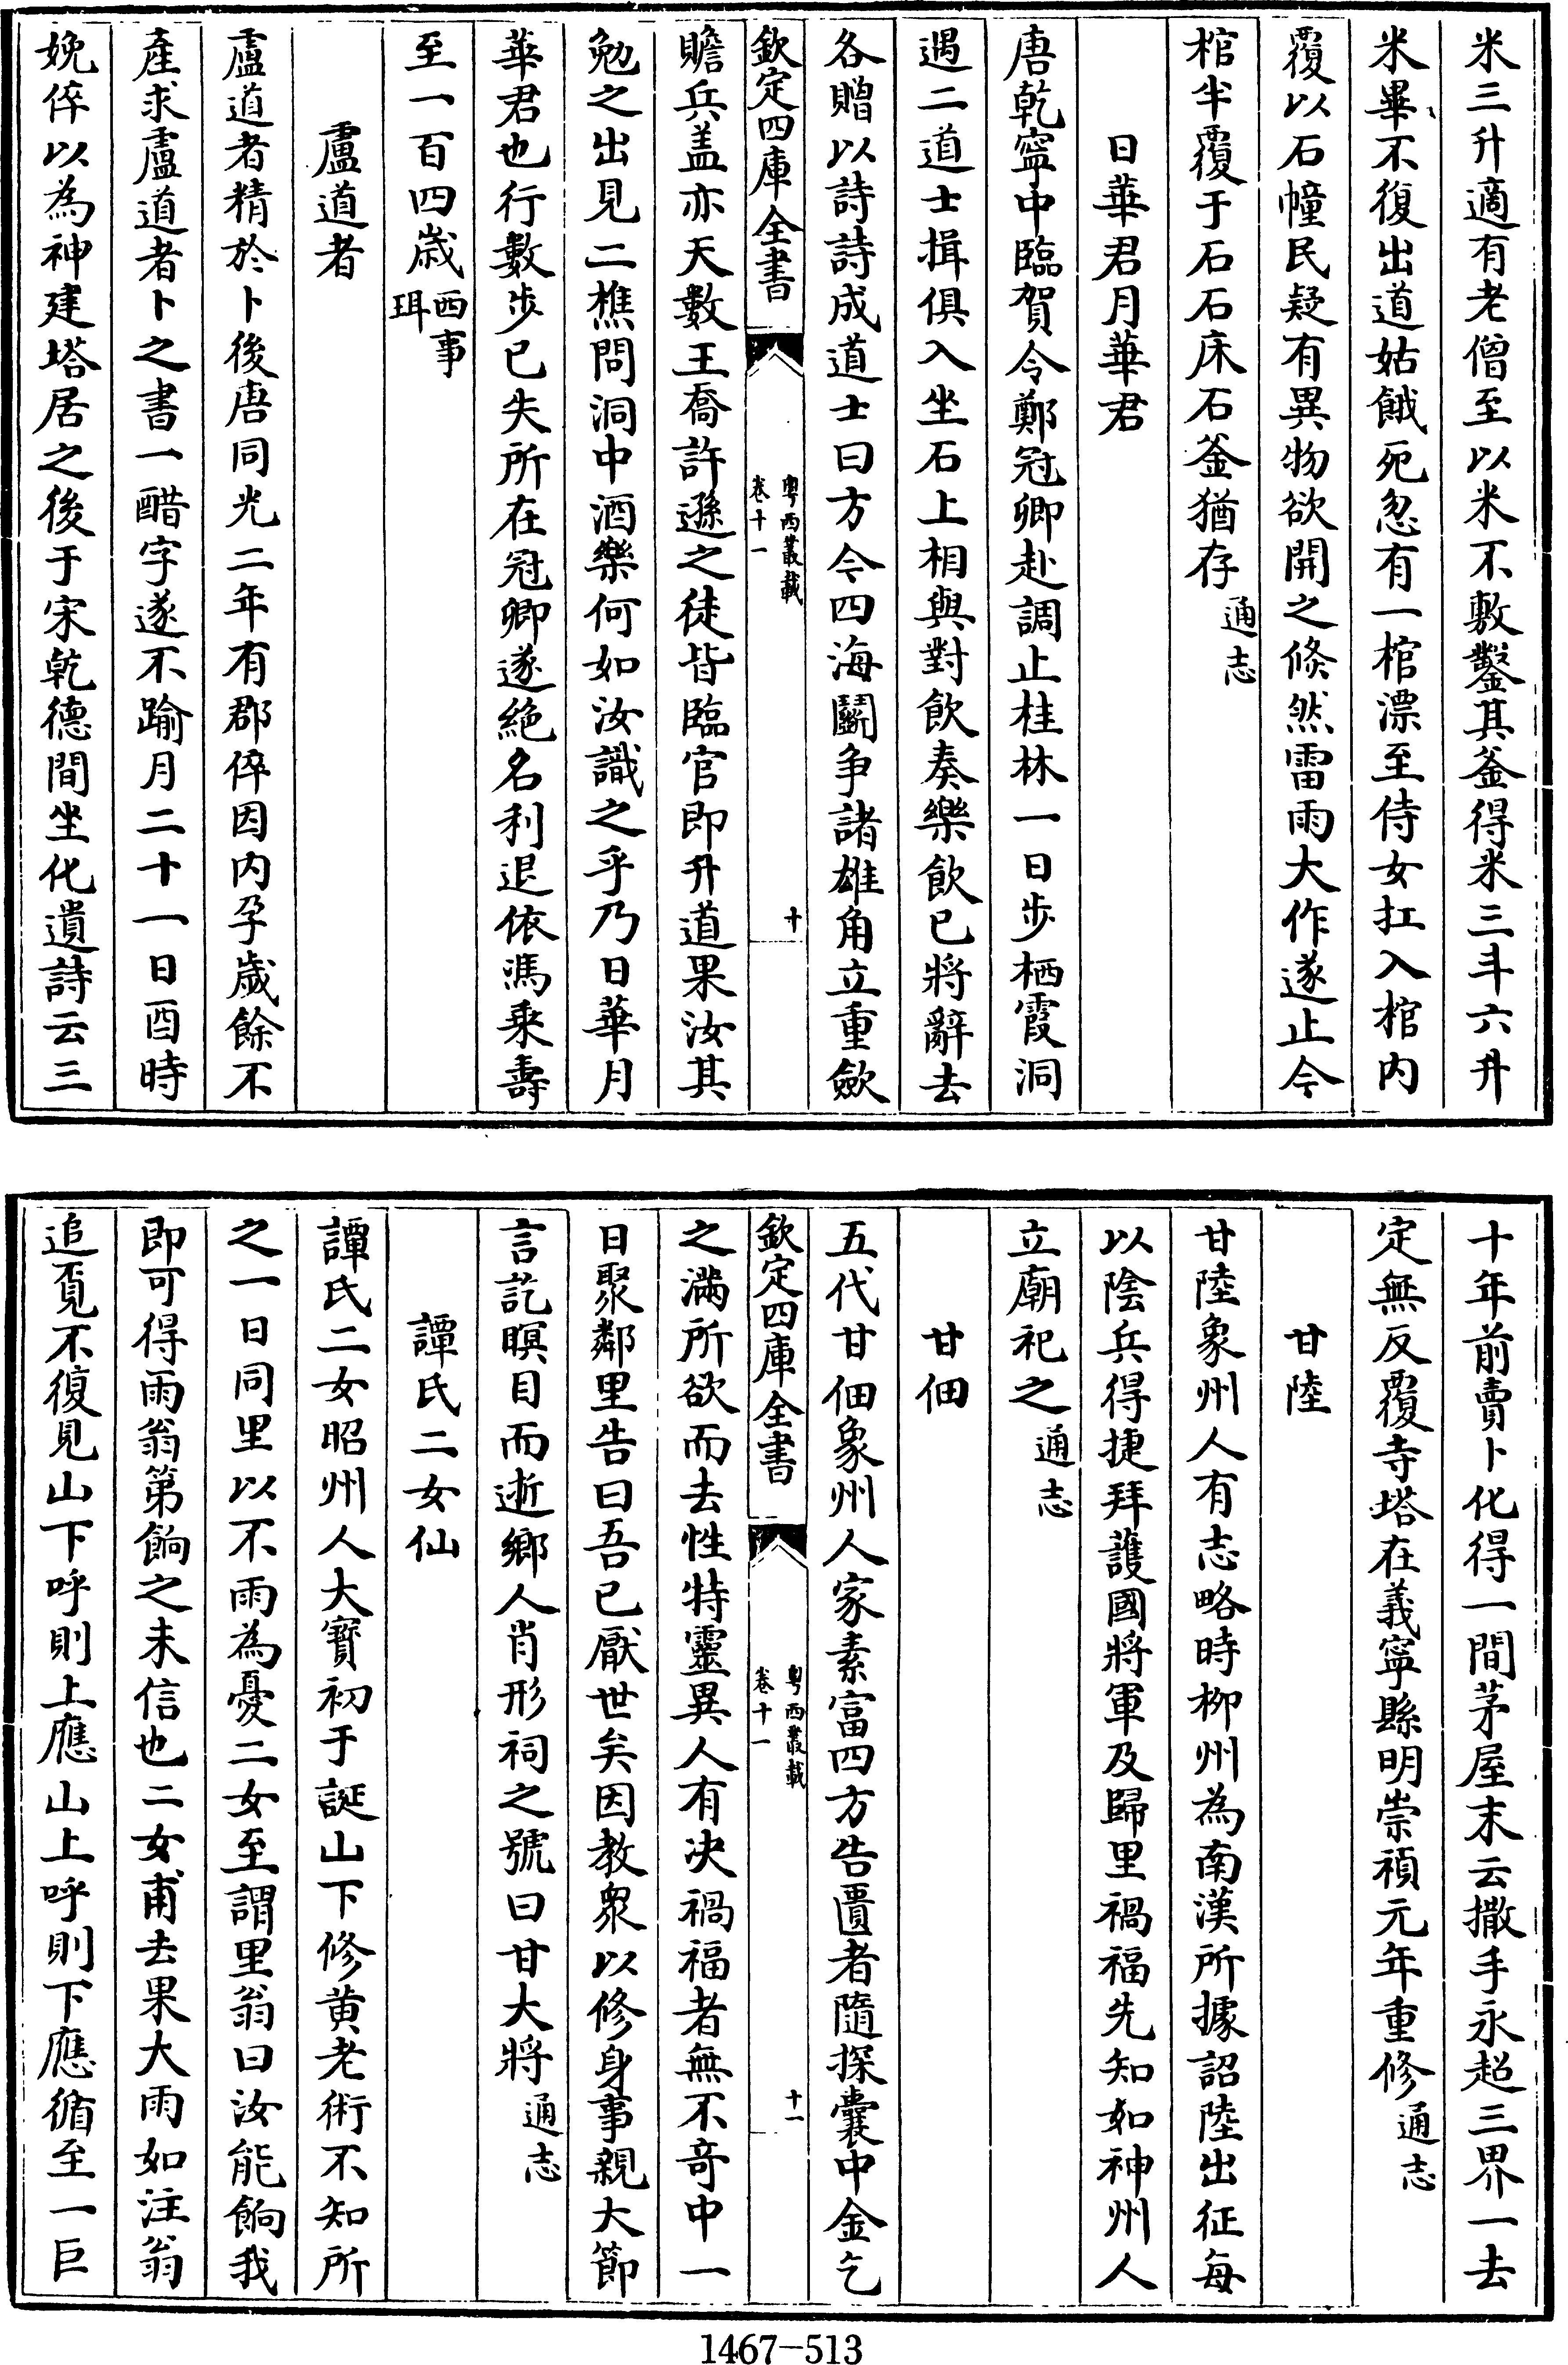 米三升適有老僧至以米不敷鑿其釜得米三斗六升
米畢不復出道姑餓死忽有一棺漂至侍女扛入棺内
覆以石幢民疑有異物欲開之倐然雷雨大作遂止今
棺半覆于石石床石釜猶存通志
日華君月華君
唐乾寧中臨賀令鄭冠卿赴調止桂林一日步栖霞洞
遇二道士揖俱入坐石上相與對飲奏樂飲已將辭去
各贈以詩詩成道士曰方今四海鬭争諸雄角立重斂
欽定四庫全書
粤西叢載
卷十一
十
贍兵盖亦天數王喬許遜之徒皆臨官即升道果汝其
勉之出見二樵問洞中酒樂何如汝識之乎乃日華月
華君也行數步已失所在冠卿遂絶名利退依馮乘壽
至一百四歲西事
珥
盧道者
盧道者精於卜後唐同光二年有郡倅因内孕歲餘不
產求盧道者卜之書一醋字遂不踰月二十一日酉時
娩倅以為神建塔居之後于宋乾德間坐化遺詩云三
十年前賣卜化得一間茅屋末云撒手永超三界一去
定無反覆寺塔在義寧縣明崇禎元年重修通志
甘陸
甘陸象州人有志略時柳州為南漢所據詔陸出征每
以陰兵得捷拜護國將軍及歸里禍福先知如神州人
立廟祀之通志
甘佃
五代甘佃象州人家素富四方告匱者隨探囊中金乞
欽定四庫全書
粤西叢載
卷十一
十一
之滿所欲而去性特靈異人有决禍福者無不竒中一
日聚鄰里告曰吾已厭世矣因教衆以修身事親大節
言訖瞑目而逝鄉人肖形祠之號曰甘大將通志
譚氏二女仙
譚氏二女昭州人大寳初于誕山下修黄老術不知所
之一日同里以不雨為憂二女至謂里翁曰汝能餉我
即可得雨翁第餉之未信也二女甫去果大雨如注翁
追覔不復見山下呼則上應山上呼則下應循至一巨
1467-513